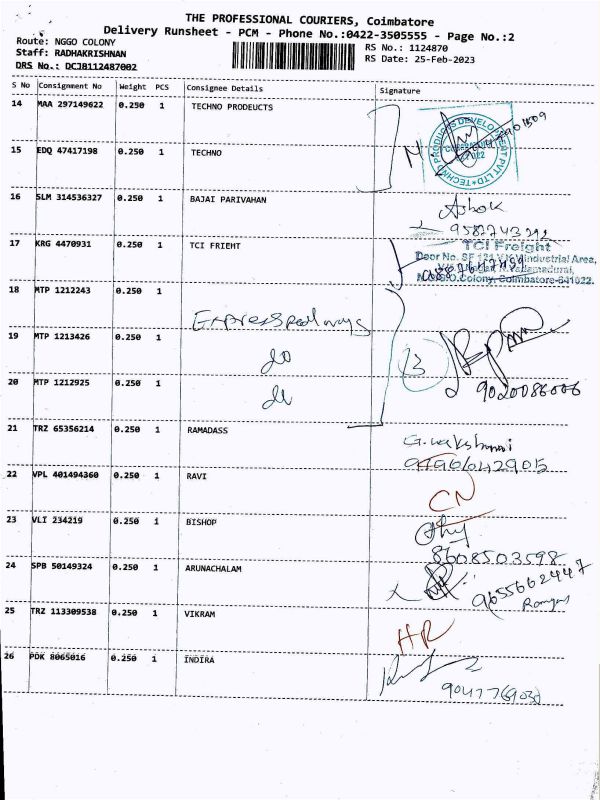 THE PROFESSIONAL COURIERS, Coimbatore
Delivery Runsheet - PCM - Phone No.:0422-3505555 - Page No.:2
Route: NGGO COLONY
Staff: RADHAKRISHNAN
DRS No.: DCJB112487002
RS No.: 1124870
RS Date: 25-Feb-2023
S No Consignment No Weight PCS Consignee Details Signature
14 MAA 297149622 0.250 1 TECHNO PRODEUCTS
15 EDQ 47417198 0.250 1 TECHNO
TECHNO PRODUCTS DEVELOPMENT PVT LTD
16 SLM 314536327 0.250 1 BAJAI PARIVAHAN
Ashok
9582743292
17 KRG 4470931 0.250 1 TCI FRIEHT
TCI Freight
Door No. SF Industrial Area,
N.G.G.O.Colony, Coimbatore-641022.
18 MTP 1212243 0.250 1
19 MTP 1213426 0.250 1 do
20 MTP 1212925 0.250 1 do
3
9020086006
21 TRZ 65356214 0.250 1 RAMADASS
22 VPL 401494360 0.250 1 RAVI
CN
23 VLI 234219 0.250 1 BISHOP
8608503598
24 SPB 50149324 0.250 1 ARUNACHALAM
9655662447
25 TRZ 113309538 0.250 1 VIKRAM
HR
26 PDK 8065016 0.250 1 INDIRA